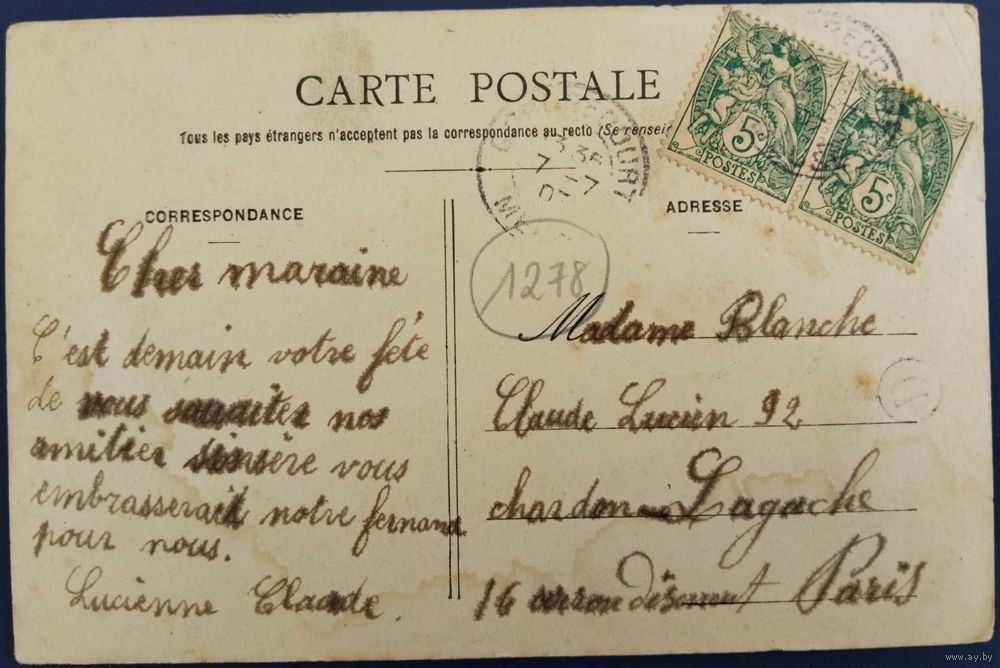 CARTE POSTALE
Tous les pays étrangers n'acceptent pas la correspondance au recto (Se rensei
CORRESPONDANCE
Cher maraine
C'est demain votre fête
de vous souaiter nos
amitier sinsère vous
embrasserait notre fernand
pour nous.
Lucienne Claude.
ADRESSE
1278
Madame Blanche
Claude Lucien 92
chardon Lagache
16 arrondisement Paris
FRANÇAISE
5c
POSTES
5c
POSTES
3 35
7
www.ay.by